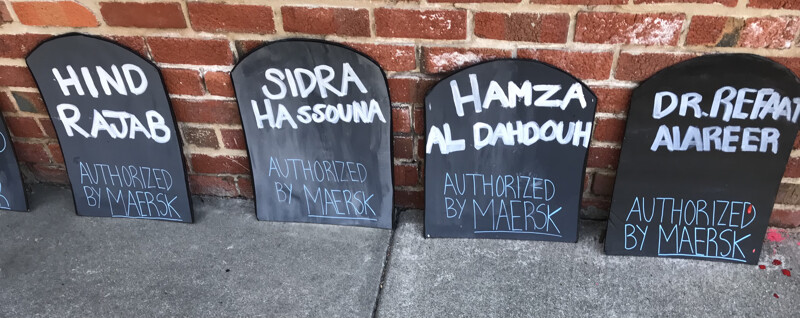 HIND
RAJAB
AUTHORIZED
BY MAERSK
SIDRA
HASSOUNA
AUTHORIZED
BY MAERSK
HAMZA
AL DAHDOUH
AUTHORIZED
BY MAERSK
DR. REFAAT
ALAREER
AUTHORIZED
BY MAERSK